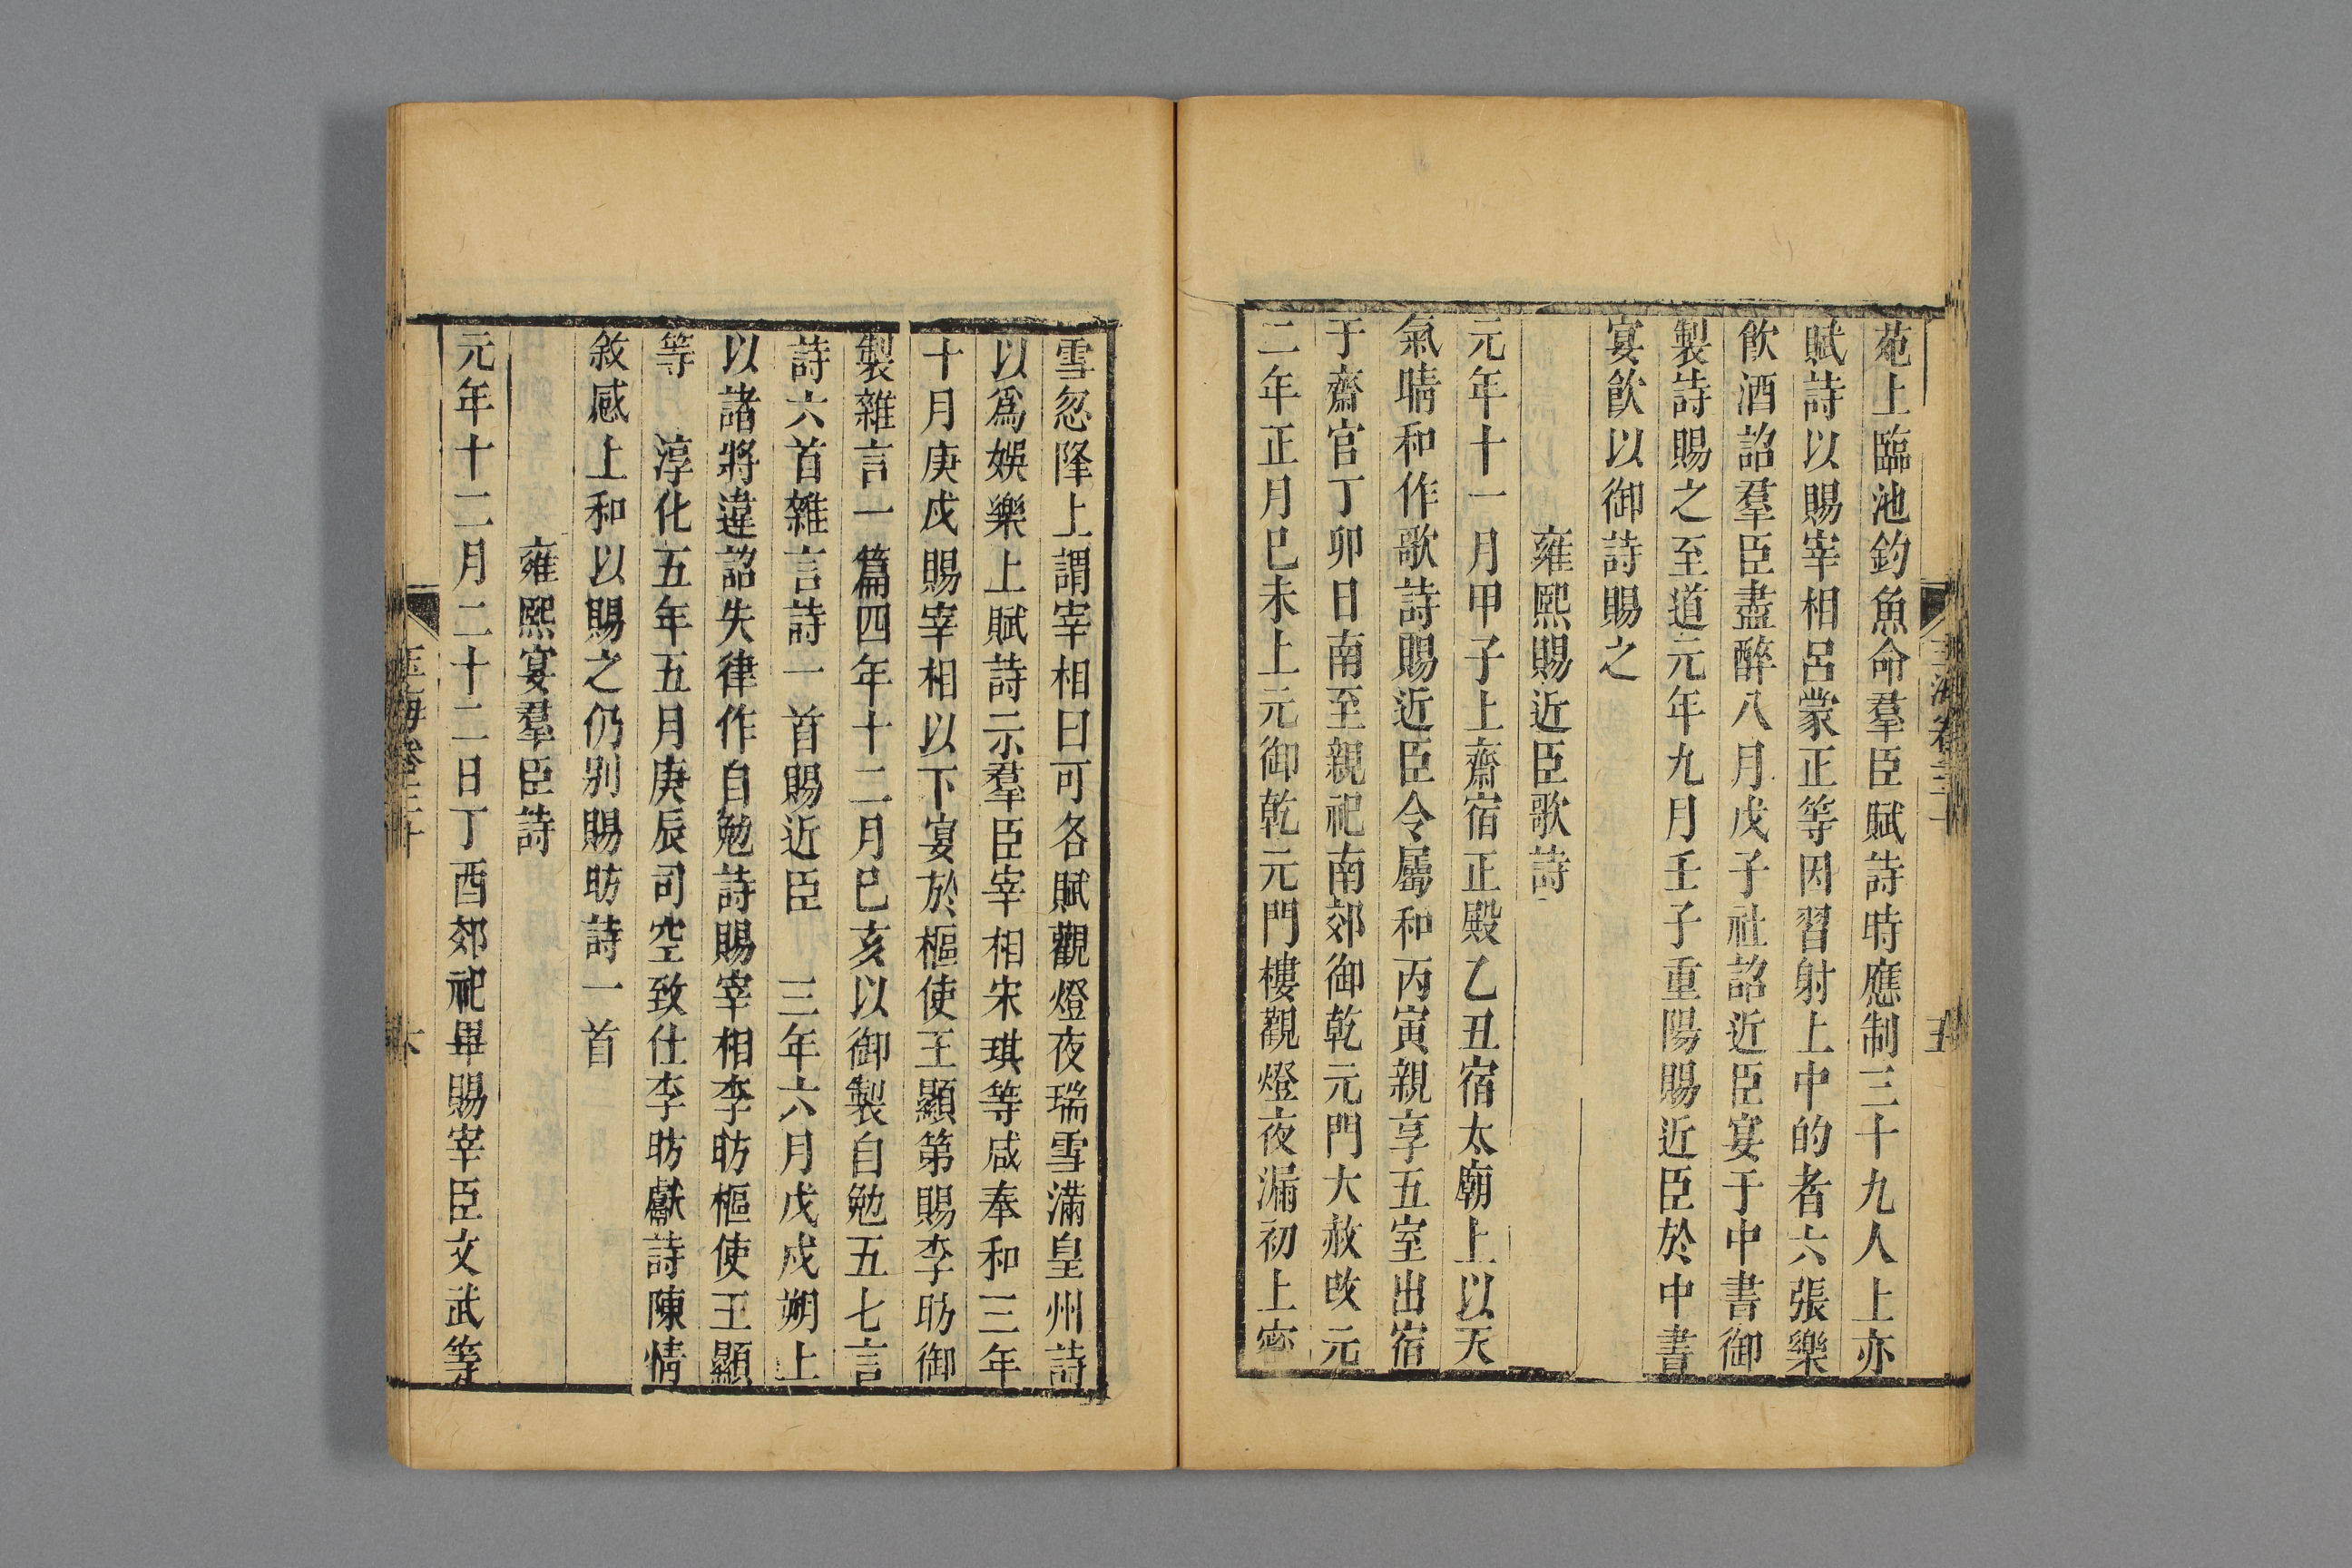 苑上臨池釣魚命羣臣賦詩時應制三十九人上亦
賦詩以賜宰相呂蒙正等因習射上中的者六張樂
飮酒詔羣臣盡醉八月戊子社詔近臣宴于中書御
製詩賜之至道元年九月壬子重陽賜近臣於中書
宴飮以御詩賜之
雍熙賜近臣歌詩
元年十一月甲子上齋宿正殿乙丑宿太廟上以天
氣晴和作歌詩賜近臣令屬和丙寅親享五室出宿
于齋宮丁卯日南至親祀南郊御乾元門大赦改元
二年正月巳未上元御乾元門樓觀燈夜漏初上密
雪忽降上謂宰相曰可各賦觀燈夜瑞雪滿皇州詩
以爲娛樂上賦詩示羣臣宰相宋琪等咸奉和三年
十月庚戌賜宰相以下宴於樞使王顯第賜李昉御
製雜言一篇四年十二月巳亥以御製自勉五七言
詩六首雜言詩一首賜近臣 三年六月戊戌朔上
以諸將違詔失律作自勉詩賜宰相李昉樞使王顯
等 淳化五年五月庚辰司空致仕李昉獻詩陳情
敘感上和以賜之仍别賜昉詩一首
雍熙宴羣臣詩
元年十二月二十二日丁酉郊祀畢賜宰臣文武等
玉海卷三十